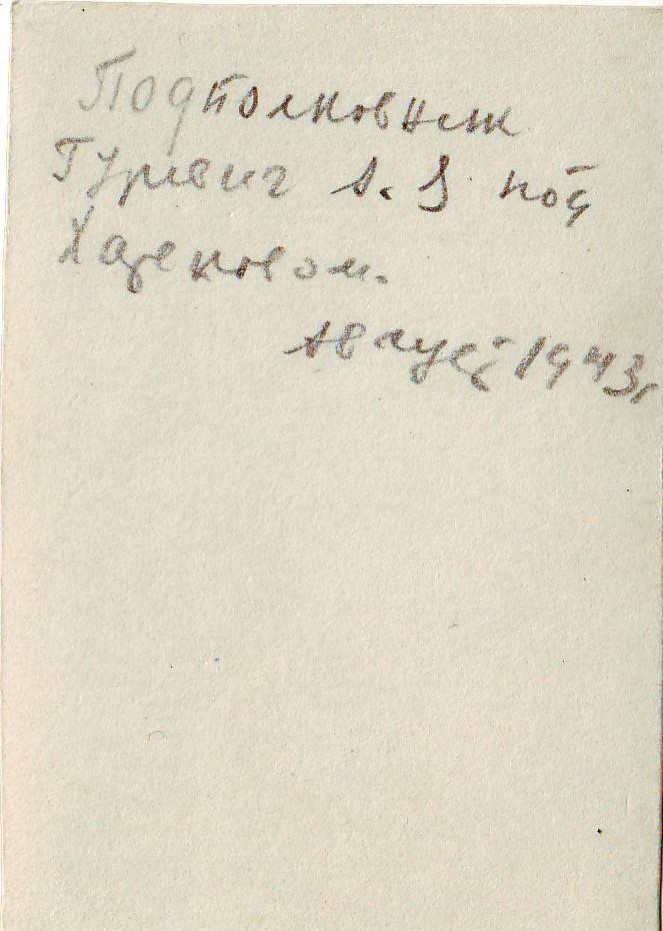 Подполковник
Гурвич А. З под
Харьковом.
Август 1943г